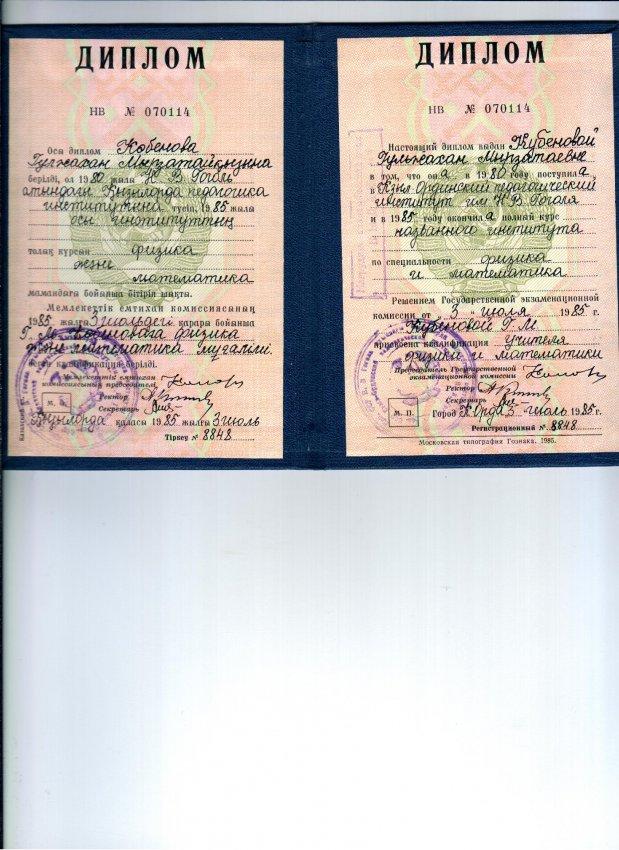 ДИПЛОМ
НВ № 070114
Осы диплом Көбенова
Гүлжахан Мырзатайқызына
берілді, ол 1980 жылы Н. В. Гоголь
атындағы Қызылорда педагогика
институтына түсіп, 1985 жылы
осы институттың
толық курсын физика
және
математика
мамандығы бойынша бітіріп шықты.
Мемлекеттік емтихан комиссиясының
1985 жылғы 3 июльдегі қарары бойынша
Г. М. Көбеноваға физика
және математика мұғалімі
деген квалификация берілді.
Мемлекеттік емтихан
комиссиясының председателі
Ректор
Секретарь
М. О.
Қызылорда қаласы 1985 жылғы 3 июль
Тіркеу № 8848
ДИПЛОМ
НВ № 070114
Настоящий диплом выдан Кубеновой
Гульжахан Мырзатаевне
в том, что она в 1980 году поступила
в Кзыл-Ординский педагогический
институт им Н. В. Гоголя
и в 1985 году окончила полный курс
названного института
по специальности физика
и математика
Решением Государственной экзаменационной
комиссии от 3 июля 1985 г.
Кубеновой Г. М.
присвоена квалификация учителя
физики и математики
Председатель Государственной
экзаменационной комиссии
Ректор
Секретарь
М. П.
Город К-Орда 3 июль 1985 г.
Регистрационный № 8848
Московская типография Гознака. 1985.